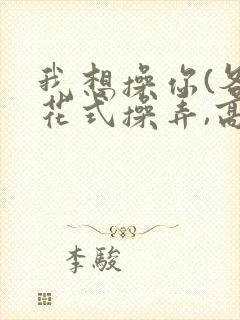 我想操你(各
花式操弄,高
李駿